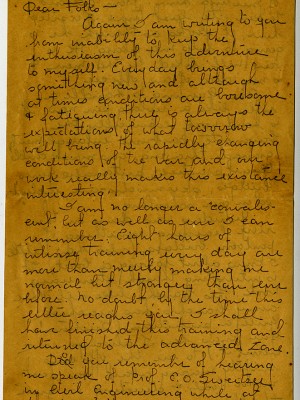 Dear Folks—
Again I am writing to you
from inability to keep the
enthusiasm of this adventure
to myself. Everyday brings
something new and although
at times conditions are boresome
& fatiguing, there is always the
expectations of what tomorrow
will bring. The rapidly changing
conditions of the war and our
work really makes this existance
interesting.
I am no longer a "convales-
cent" but as well as ever I can
remember. Eight hours of
intense training every day are
more than merely making me
normal but stronger than ever
before. No doubt, by the time this
letter reaches you, I shall
have finished this training and
returned to the advanced zone.
Did you remember of hearing
me speak of Prof. E. O.
in Civil Engineering while at